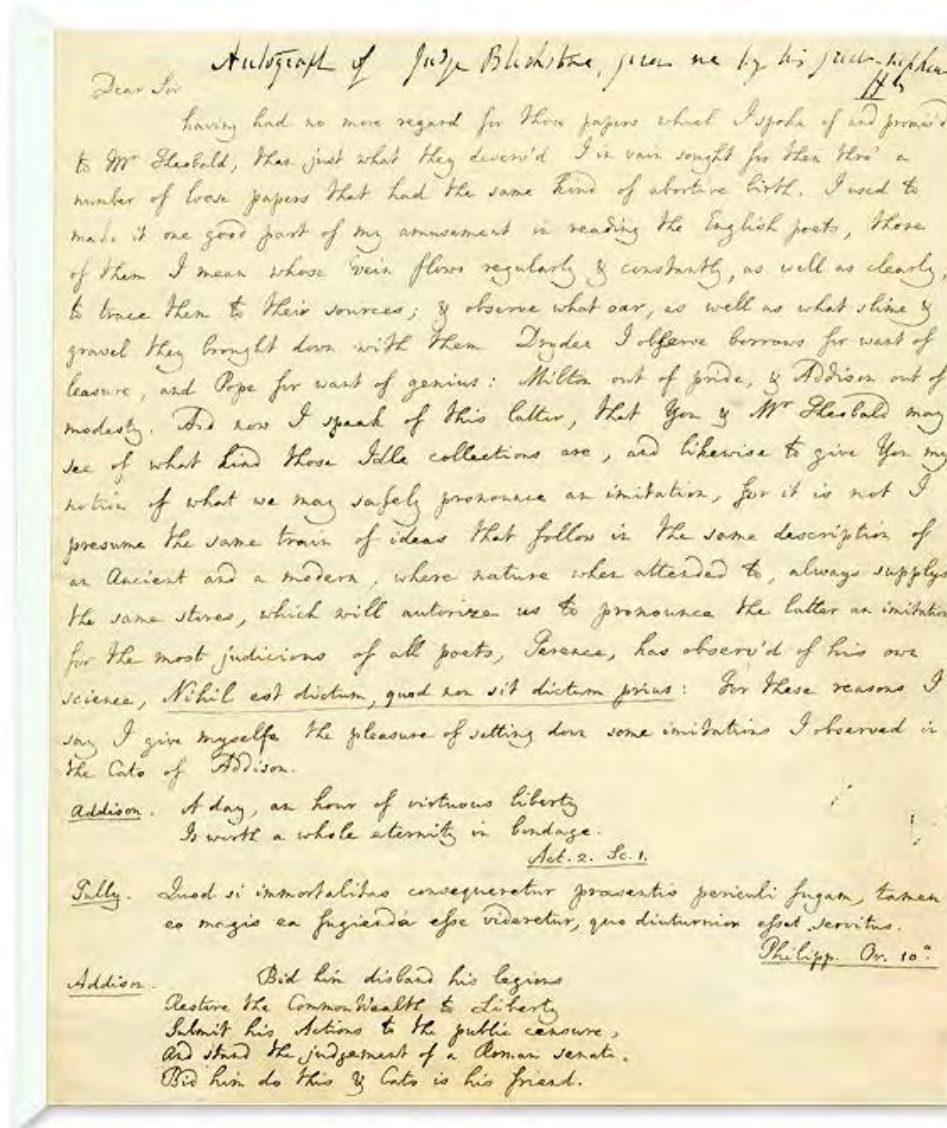 Autograph of Judge Blackstone, given me by his great-nephew
Dear Sir
having had no more regard for those papers which I spoke of and promis'd
to Mr Theobald, than just what they deserv'd I in vain sought for them thro' a
number of loose papers that had the same kind of abortive birth. I used to
make it one good part of my amusement in reading the English poets, those
of them I mean whose vein flows regularly & constantly, as well as clearly,
to trace them to their sources; & observe what oar, as well as what slime &
gravel they brought down with them Dryden I observe borrows for want of
leasure, and Pope for want of genius: Milton out of pride, & Addison out of
modesty. And now I speak of this latter, that You & Mr Theobald may
see of what kind those Idle collections are, and likewise to give You my
notion of what we may safely pronounce an imitation, for it is not I
presume the same train of ideas that follow in the same description of
an Ancient and a modern, where nature when attended to, always supplys
the same stores, which will autorize us to pronounce the latter an imitation
for the most judicious of all poets, Terence, has observ'd of his own
science, Nihil est dictum, quod non sit dictum prius: For these reasons I
say I give myselfe the pleasure of setting down some imitations I observed in
the Cato of Addison.
Addison. A day, an hour of virtuous liberty
Is worth a whole eternity in bondage.
Act. 2. Sc. 1.
Tully. Quod si immortalitas consequeretur præsentis periculi fugam, tamen
eo magis ea fugienda esse videretur, quo diuturnior esset servitus.
Philipp. Or. 10a.
Addison. Bid him disband his legions
Restore the CommonWealth to Liberty
Submit his Actions to the public censure,
And stand the judgement of a Roman senate.
Bid him do this & Cato is his friend.